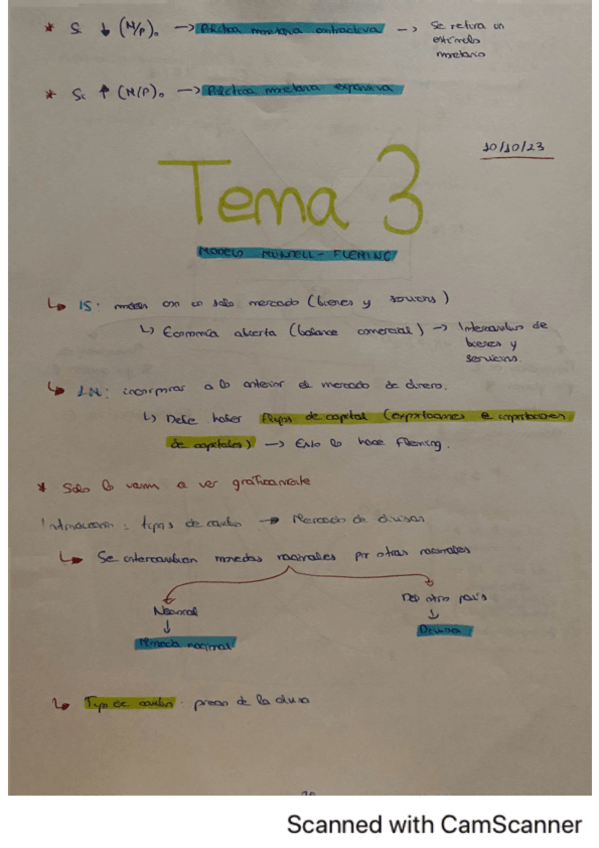 * Si ↓ (M/P)₀ → Política monetaria contractiva → Se retira un
estímulo
monetario
* Si ↑ (M/P)₀ → Política monetaria expansiva
10/10/23
Tema 3
MODELO MUNDELL-FLEMING
↳ IS: modelo con un solo mercado (bienes y servicios)
↳ Economía abierta (balance comercial) → Intercambio de
bienes y
servicios.
↳ LM: incorporar a lo anterior el mercado de dinero.
↳ Debe haber flujos de capital (exportaciones e importaciones
de capitales) → Esto lo hace Fleming.
* Solo lo vamos a ver gráficamente
Introducción: tipos de cambio → Mercado de divisas
↳ Se intercambian monedas nacionales por otras nacionales
Nacional
↓
Moneda nacional
Del otro país
↓
Divisa
↳ Tipo de cambio: precio de la divisa
Scanned with CamScanner